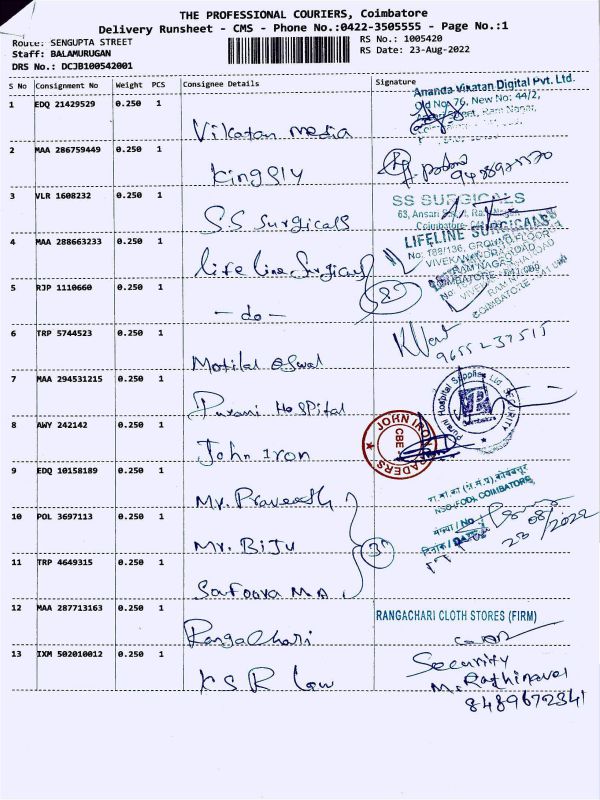 THE PROFESSIONAL COURIERS, Coimbatore
Delivery Runsheet - CMS - Phone No.:0422-3505555 - Page No.:1
Route: SENGUPTA STREET
RS No.: 1005420
Staff: BALAMURUGAN
RS Date: 23-Aug-2022
DRS No.: DCJB100542001
S No Consignment No Weight PCS Consignee Details Signature
Ananda Vikatan Digital Pvt. Ltd.
Old No: 76, New No: 44/2,
1 EDQ 21429529 0.250 1 Vikatan media
2 MAA 286759449 0.250 1 Kingsly
3 VLR 1608232 0.250 1 S.S Surgicals
SS SURGICALS
63, Ansari
Coimbatore
4 MAA 288663233 0.250 1 life line Surgicals
LIFELINE SURGICALS
No: 188/136, GROUND FLOOR
VIVEKANANDRA ROAD
RAM NAGAR
COIMBATORE - 641 009
5 RJP 1110660 0.250 1 - do -
6 TRP 5744523 0.250 1 Motilal Oswal
9655237515
7 MAA 294531215 0.250 1 Purani Hospital
Purani Hospital Supplies Ltd SECURITY
8 AWY 242142 0.250 1 John Iron
JOHN IRON TRADERS
CBE
9 EDQ 10158189 0.250 1 Mr. Praveesh
NSO (FOD), COIMBATORE,
संख्या / No
दिनांक / DATE
23/08/2022
10 POL 3697113 0.250 1 Mr. BIJU
3
11 TRP 4649315 0.250 1
12 MAA 287713163 0.250 1 Rangachari
RANGACHARI CLOTH STORES (FIRM)
13 IXM 502010012 0.250 1 K S R law
Security
M. Rathinavel
8489672341